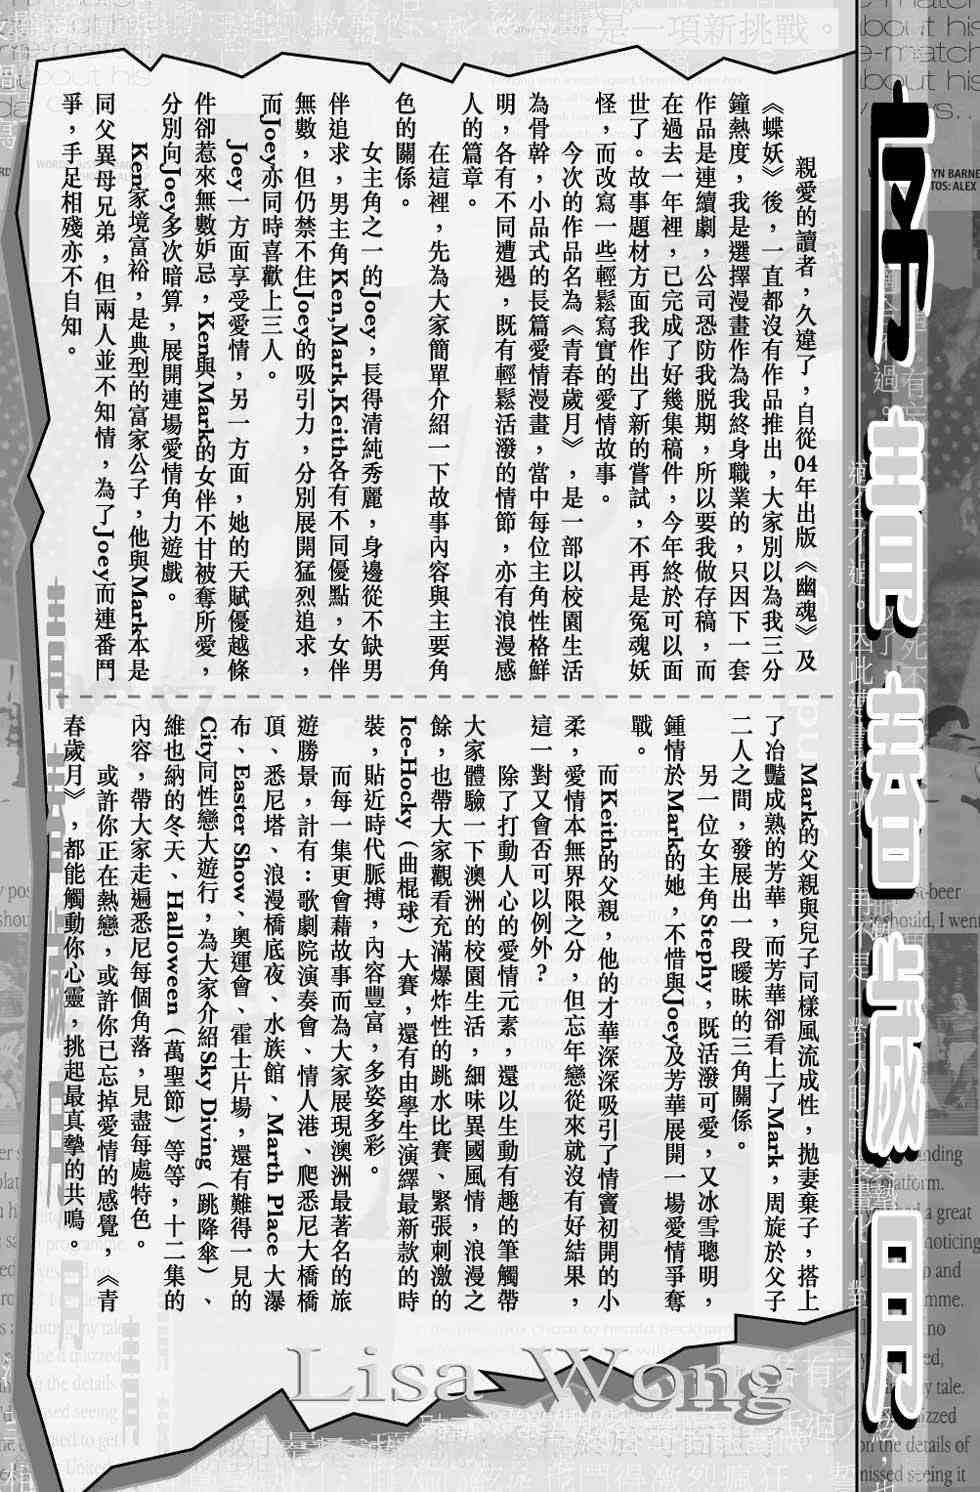 序 青春歲月
親愛的讀者，久違了，自從04年出版《幽魂》及
《蝶妖》後，一直都沒有作品推出，大家別以為我三分
鐘熱度，我是選擇漫畫作為我終身職業的，只因下一套
作品是連續劇，公司恐防我脱期，所以要我做存稿，而
在過去一年裡，已完成了好幾集稿件，今年終於可以面
世了。故事題材方面我作出了新的嘗試，不再是冤魂妖
怪，而改寫一些輕鬆寫實的愛情故事。
今次的作品名為《青春歲月》，是一部以校園生活
為骨幹，小品式的長篇愛情漫畫，當中每位主角性格鮮
明，各有不同遭遇，既有輕鬆活潑的情節，亦有浪漫感
人的篇章。
在這裡，先為大家簡單介紹一下故事內容與主要角
色的關係。
女主角之一的Joey，長得清純秀麗，身邊從不缺男
伴追求，男主角Ken,,Mark,Keith各有不同優點，女伴
無數，但仍禁不住Joey的吸引力，分別展開猛烈追求，
而Joey亦同時喜歡上三人。
Joey一方面享受愛情，另一方面，她的天賦優越條
件卻惹來無數妒忌，Ken與Mark的女伴不甘被奪所愛，
分別向Joey多次暗算，展開連場愛情角力遊戲。
Ken家境富裕，是典型的富家公子，他與Mark本是
同父異母兄弟，但兩人並不知情，為了Joey而連番鬥
爭，手足相殘亦不自知。
Mark的父親與兒子同樣風流成性，拋妻棄子，搭上
了冶豔成熟的芳華，而芳華卻看上了Mark，周旋於父子
二人之間，發展出一段曖昧的三角關係。
另一位女主角Stephy，既活潑可愛，又冰雪聰明，
鍾情於Mark的她，不惜與Joey及芳華展開一場愛情爭奪
戰。
而Keith的父親，他的才華深深吸引了情竇初開的小
柔，愛情本無界限之分，但忘年戀從來就沒有好結果，
這一對又會否可以例外？
除了打動人心的愛情元素，還以生動有趣的筆觸帶
大家體驗一下澳洲的校園生活，細味異國風情，浪漫之
餘，也帶大家觀看充滿爆炸性的跳水比賽、緊張刺激的
Ice-Hocky（曲棍球）大賽，還有由學生演繹最新款的時
裝，貼近時代脈搏，內容豐富，多姿多彩。
而每一集更會藉故事而為大家展現澳洲最著名的旅
遊勝景，計有：歌劇院演奏會、情人港、爬悉尼大橋橋
頂、悉尼塔、浪漫橋底夜、水族館、Marth Place大瀑
布、Easter Show、奧運會、霍士片場，還有難得一見的
City同性戀大遊行，為大家介紹Sky Diving（跳降傘）、
維也納的冬天、Halloween（萬聖節）等等，十二集的
內容，帶大家走遍悉尼每個角落，見盡每處特色。
或許你正在熱戀，或許你已忘掉愛情的感覺，《青
春歲月》，都能觸動你心靈，挑起最真摯的共鳴。
Lisa Wong